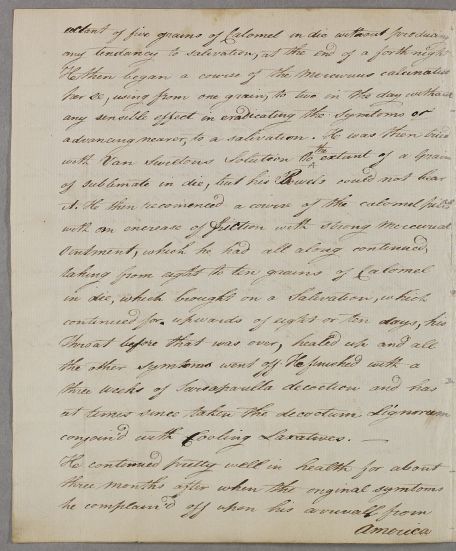 extent of five grains of Calomel in die without produc
any tendancy to salivation, at the end of a forthnight
He then began a course of the Mercurius calcinatus
per se, using from one grain, to two in the day without
any sensible effect in eradicating the Symtoms or
advancing nearer, to a salivation. He was then tried
with Van Swietens Solution to the extent of a Grain
of sublimate in die, but his Bowels could not bear
it. He then recomenced a course of the calomel pills
with an encrease of friction with strong Mercurial
Ointment, which he had all along continued,
taking from eight to ten grains of Calomel
in die, which brought on a Salivation, which
continued for upwards of eight or ten days, his
Throat before that was over, healed up and all
the other Symtoms went off. He finished with a
three weeks of Sarsaparilla decoction and has
at times since taken the decoctum Lignorum
conjoin'd with Cooling Laxatives. —
He continued pretty well in health for about
three months after when the original symtoms
he complain'd off upon his arrivall from
America